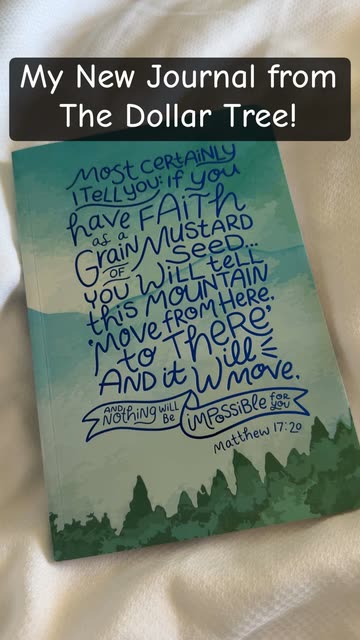 My New Journal from
The Dollar Tree!
MOST CERTAINLY
I TELL YOU: IF YOU
have FAITH
as a
GRAIN OF MUSTARD
SEED...
YOU WILL tell
this MOUNTAIN
'MOVE FROM HERE,
to THERE'
AND it Will
MOVE.
AND NOTHING WILL BE IMPOSSIBLE FOR YOU
Matthew 17:20